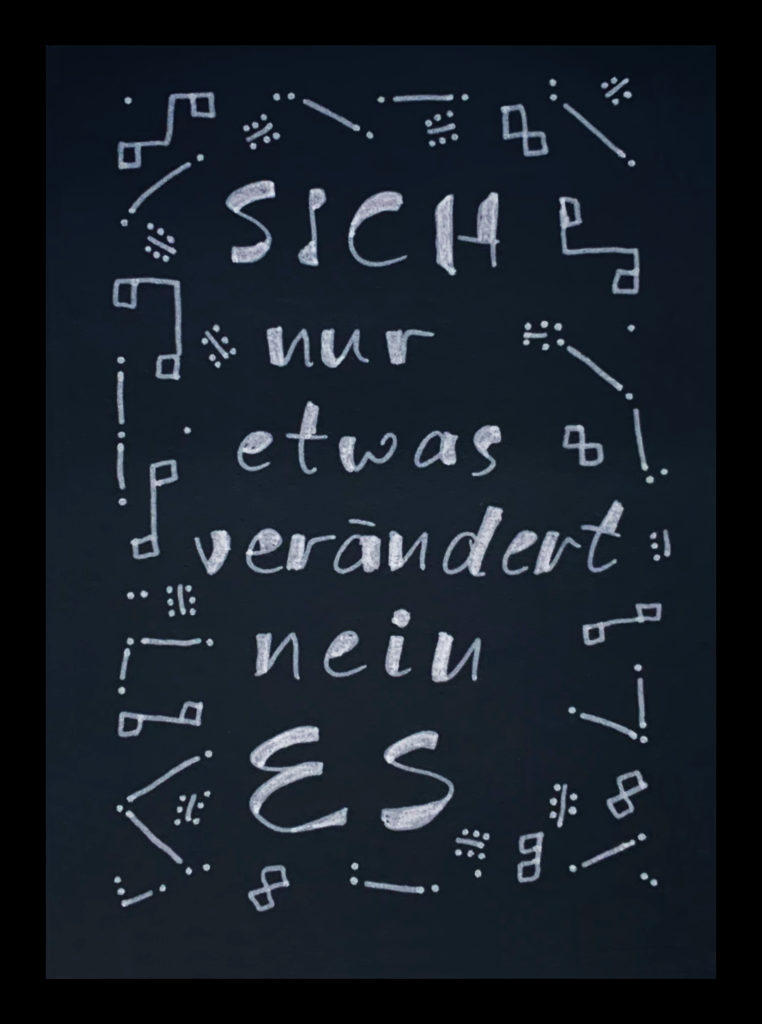 SICH
nur
etwas
verändert
nein
ES